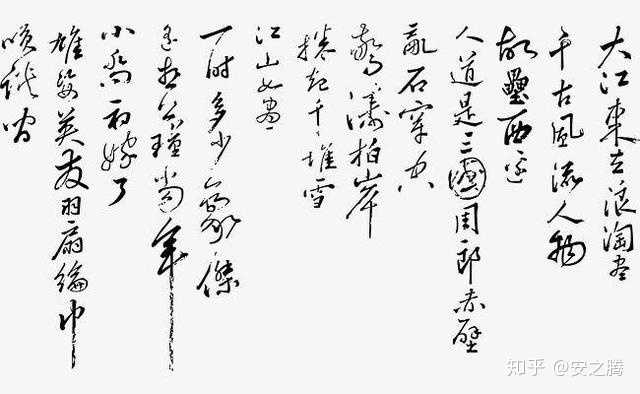 大江東去浪淘盡
千古風流人物
故壘西邊
人道是三國周郎赤壁
亂石穿空
驚濤拍岸
捲起千堆雪
江山如畫
一時多少豪傑
遙想公瑾當年
小喬初嫁了
雄姿英發羽扇綸巾
咲談間
知乎 @安之腾